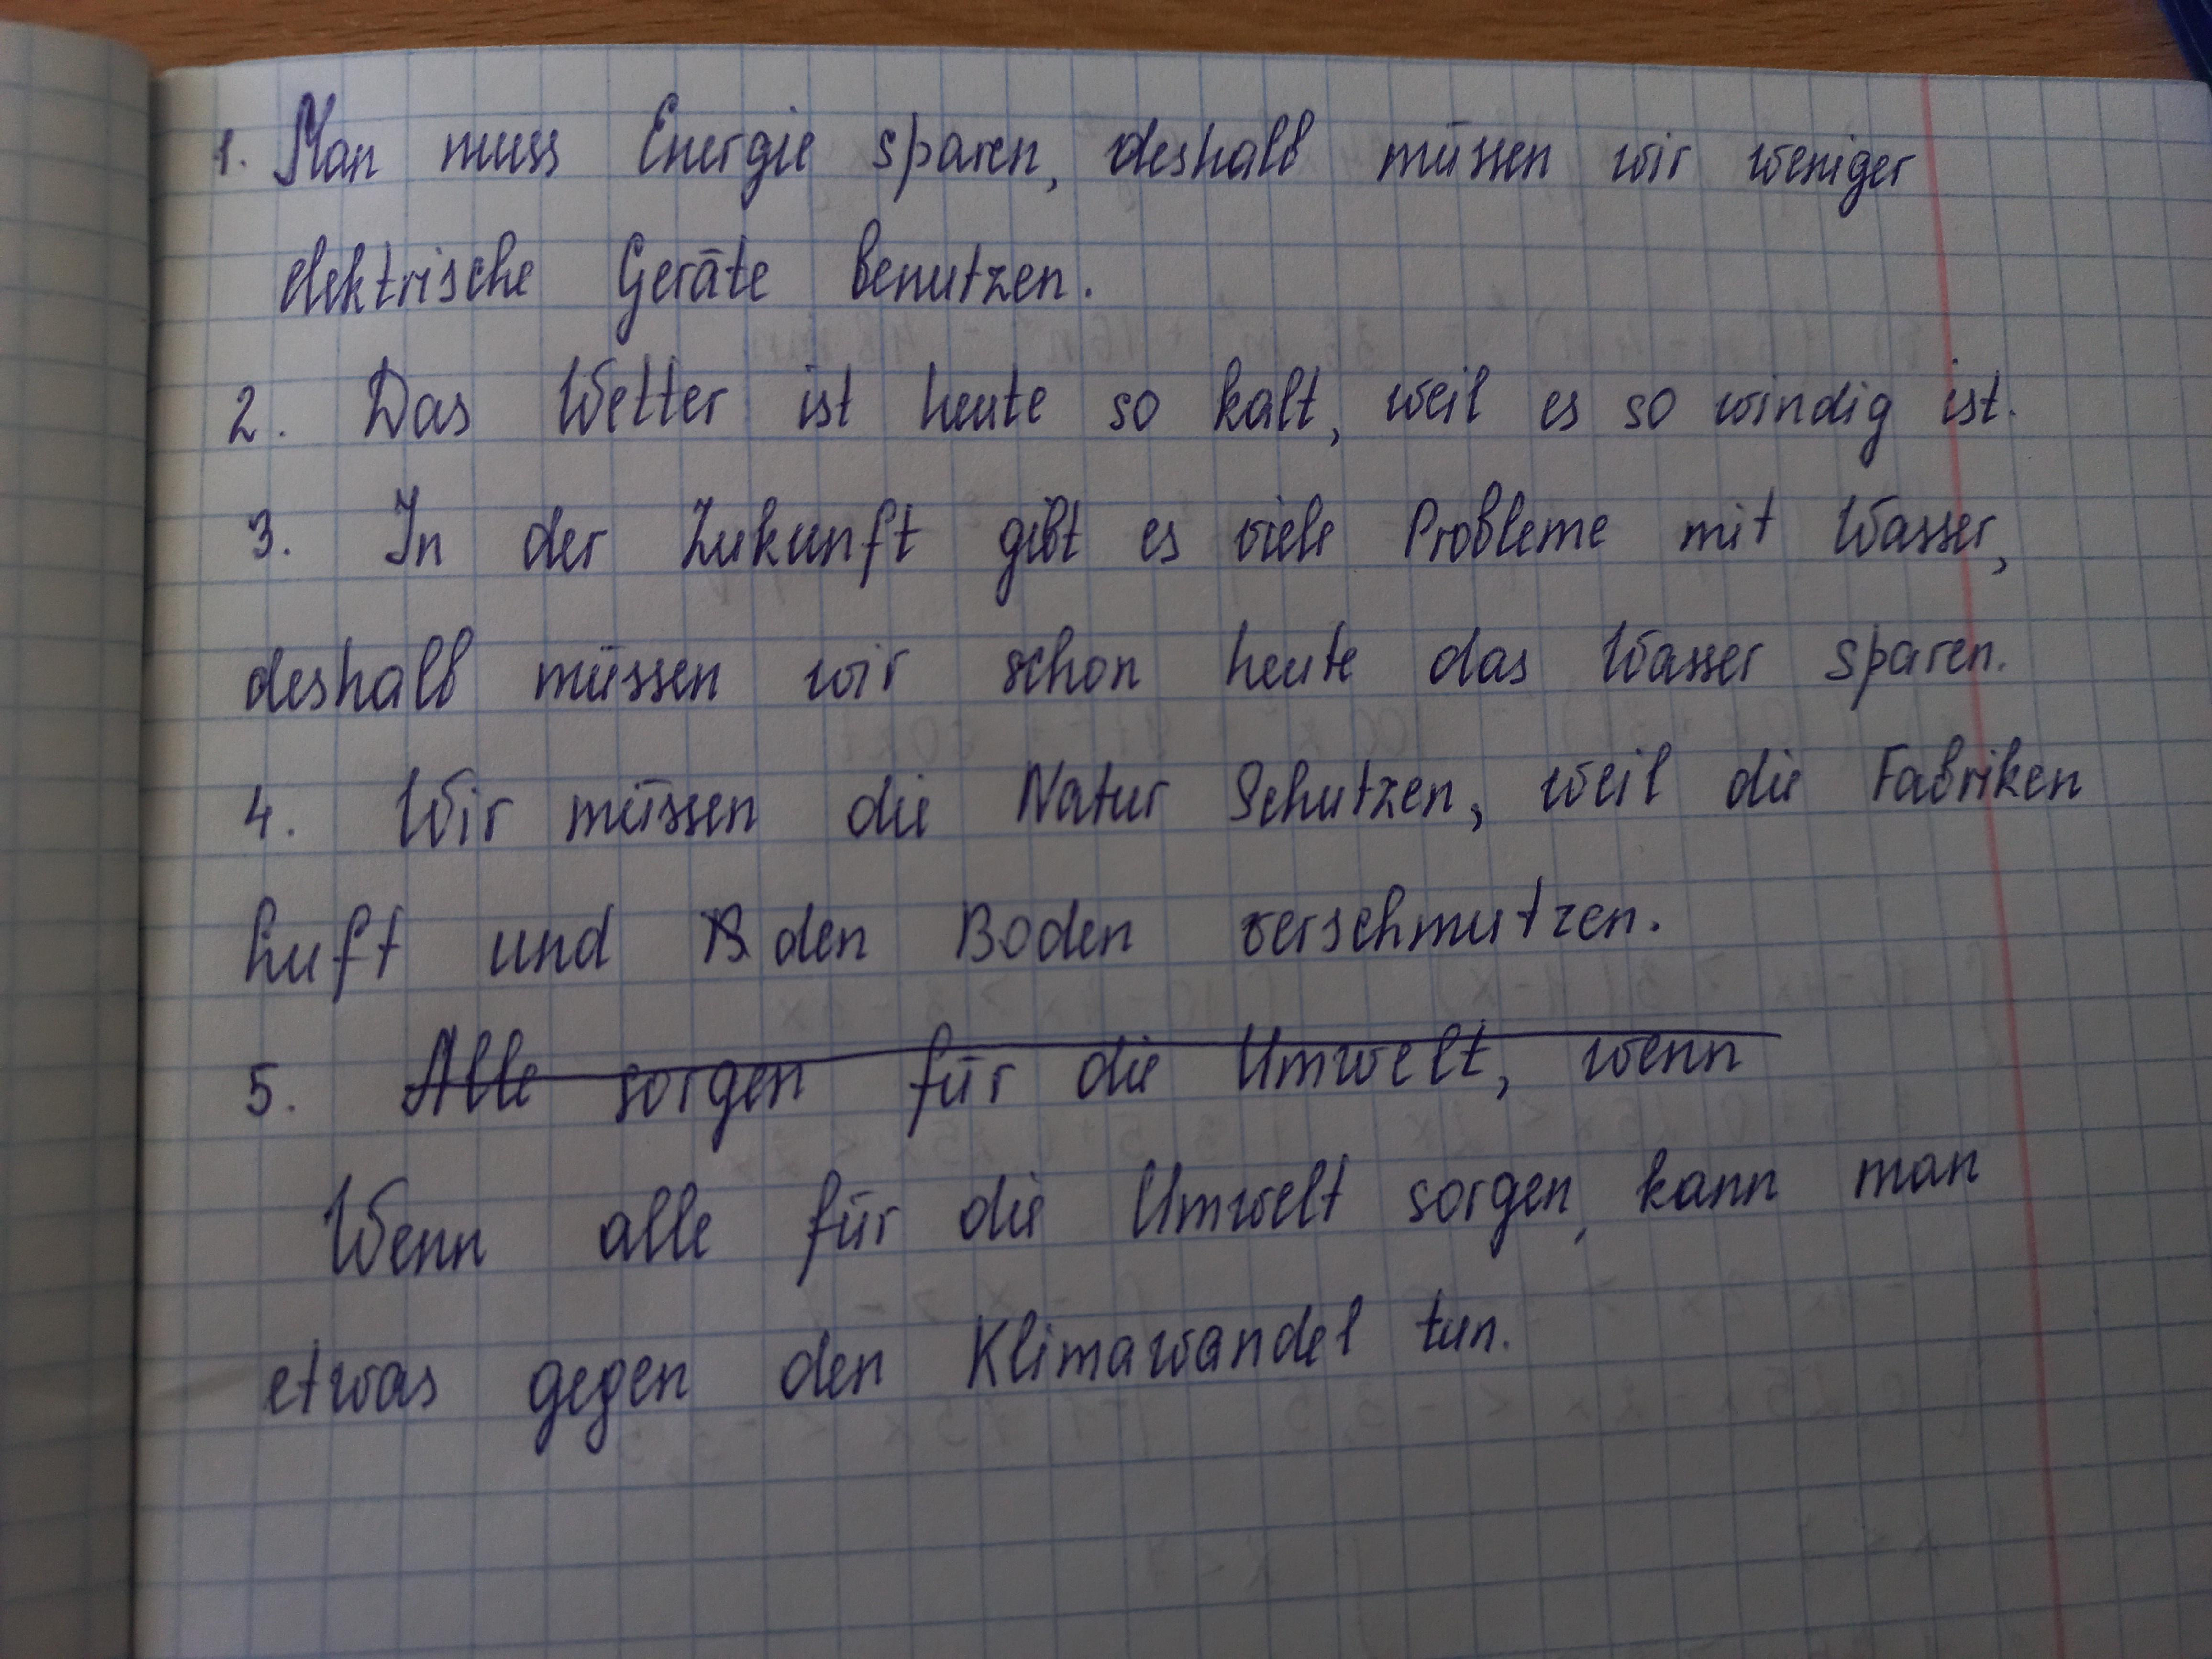 1. Man muss Energie sparen, deshalb müssen wir weniger
elektrische Geräte benutzen.
2. Das Wetter ist heute so kalt, weil es so windig ist.
3. In der Zukunft gibt es viele Probleme mit Wasser,
deshalb müssen wir schon heute das Wasser sparen.
4. Wir müssen die Natur Schutzen, weil die Fabriken
Luft und B den Boden verschmutzen.
5. Alle sorgen für die Umwelt, wenn
Wenn alle für die Umwelt sorgen, kann man
etwas gegen den Klimawandel tun.